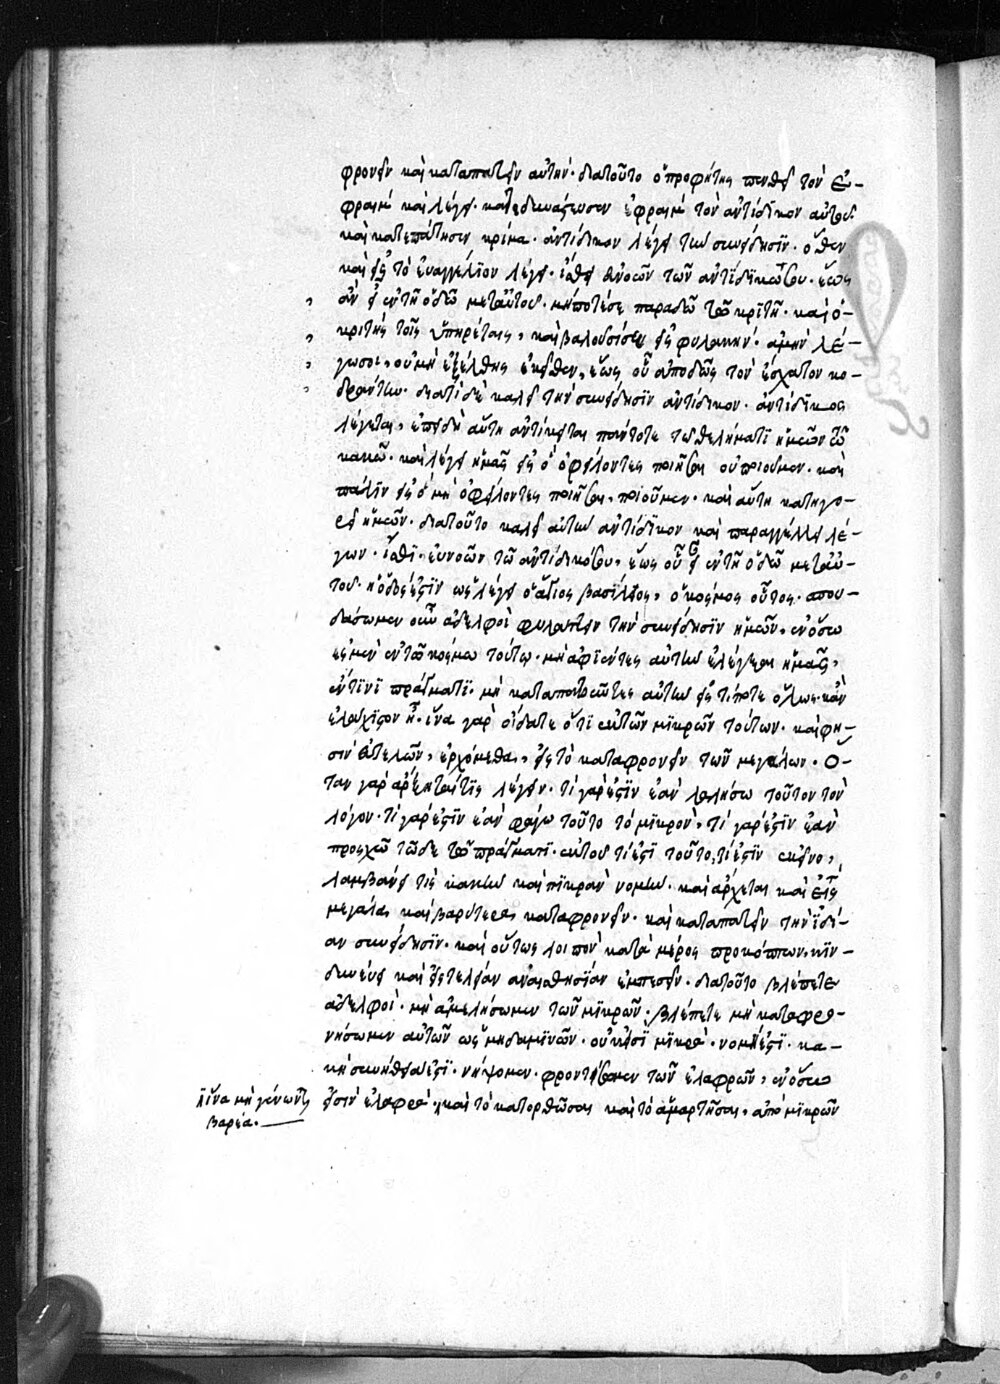 φρονεῖν καὶ καταπατεῖν αὐτήν· διατοῦτο ὁ προφήτης πενθεῖ τὸν Ἐ-
φραιμ' καὶ λέγει· κατεδυνάστευσεν ἐφραιμ' τὸν ἀντίδικον αὐτοῦ
καὶ κατεπάτησεν κρίμα· ἀντίδικον λέγει τὴν συνείδησϊν· ὅθεν
καὶ εἰς τὸ ἐυαγγέλϊον λέγει· ἴσθι ἐυνοῶν τῶν ἀντϊδίκω σου· ἕως
ὅν εἶ ἐν τῇ ὁδῶ μεταὐτοῦ· μήποτέ σε παραδῶ τῶ κρϊτῆ· καὶ ὁ-
κριτὴς τοῖς ὑπηρέταις, καὶ βαλοῦσί σε εἰς φυλακήν· ἀμὴν λέ-
γω σοι, οὐ μὴ ἐξέλθῃς ἐκεῖθεν, ἕως οὗ ἀποδῶς τὸν ἔσχατον κο-
δράντην· διατί δὲ καλεῖ τὴν συνείδησϊν ἀντίδικον· ἀντίδϊκος
λέγεται, ἐπειδὴ αὕτη ἀντίκειται πάντοτε τῶ θελήματϊ ἡμῶν τῶ
κακῶ· καὶ λέγει ἡμᾶς εἰς ὁ ὀφείλοντες ποιῆσαι οὐ ποιοῦμεν· καὶ
πάλϊν εἰς ὁ μὴ ὀφείλοντες ποιῆσαι, ποιοῦμεν· καὶ αὕτη κατηγο-
ρεῖ ἡμῶν· διατοῦτο καλεῖ αὐτὴν ἀντίδϊκον καὶ παραγγέλλει λέ-
γων· ἴσθϊ ἐυνοῶν τῶ ἀντιδίκω σου, ἕως οὗ εἶ ἐν τῇ ὁδῶ μεταὐ-
τοῦ· ἡ ὁδὸς ἐστὶν ὡς λέγει ὁ ἅγιος βασίλειος, ὁ κόσμος οὗτος· σπου-
δάσωμεν οὖν ἀδελφοὶ φυλάττειν τὴν συνείδησϊν ἡμῶν, ἐν ὅσω
ἐσμὲν ἐν τῶ κόσμω τούτῳ· μὴ ἀφϊέντες αὐτὴν ἐλέγξαι ἡμᾶς,
ἔν τινϊ πράγματϊ· μὴ καταπατοῦντες αὐτὴν εἴς τίποτε ὅλως· κἂν
ἐλάχϊστον ᾖ· ἵνα γὰρ οἴδατε ὅτϊ ἐκ τῶν μϊκρῶν τούτων· καὶ φη-
σὶν ἐυτελῶν, ἐρχόμεθα, εἰς τὸ καταφρονεῖν τῶν μεγάλων· Ὅ-
ταν γὰρ ἄρξηταί τϊς λέγειν· τί γάρ ἐστϊν ἐὰν λαλήσω τοῦτον τὸν
λόγον· τί γάρ ἐστϊν ἐὰν φάγω τοῦτο τὸ μϊκρόν, τί γάρ ἐστϊν ἐὰν
προσχῶ τῶδε τῶ πράγματϊ· ἐκ τοῦ τί ἐστϊ τοῦτο, τί ἐστϊν ἐκεῖνο,
λαμβάνει τϊς κακὴν καὶ πϊκρὰν νομήν· καὶ ἄρχεται καὶ εἰς
μεγάλα, καὶ βαρύτερα καταφρονεῖν· καὶ καταπατεῖν τὴν ἰδί-
αν συνείδησϊν· καὶ οὕτως λοιπὸν κατὰ μέρος προκόπτων, κϊν-
δυνεύει καὶ εἰς τελείαν ἀναισθησίαν ἐμπεσεῖν· διατοῦτο βλέπετε
ἀδελφοὶ· μὴ ἀμελήσωμεν τῶν μϊκρῶν· βλέπετε μὴ καταφρο-
νήσωμεν αὐτῶν ὡς μηδαμϊνῶν· οὐκ εἰσὶ μϊκρά· νομή ἐστϊ· κα-
κή συνήθεια ἐστϊ· νήψομεν· φροντίσωμεν τῶν ἐλαφρῶν, ἐν ὅσω
εἰσὶν ἐλαφρά· καὶ τὸ κατορθῶσαι καὶ τὸ ἁμαρτῆσαι, ἀπὸ μϊκρῶν
ἵνα μὴ γένωντ
βαρέα.